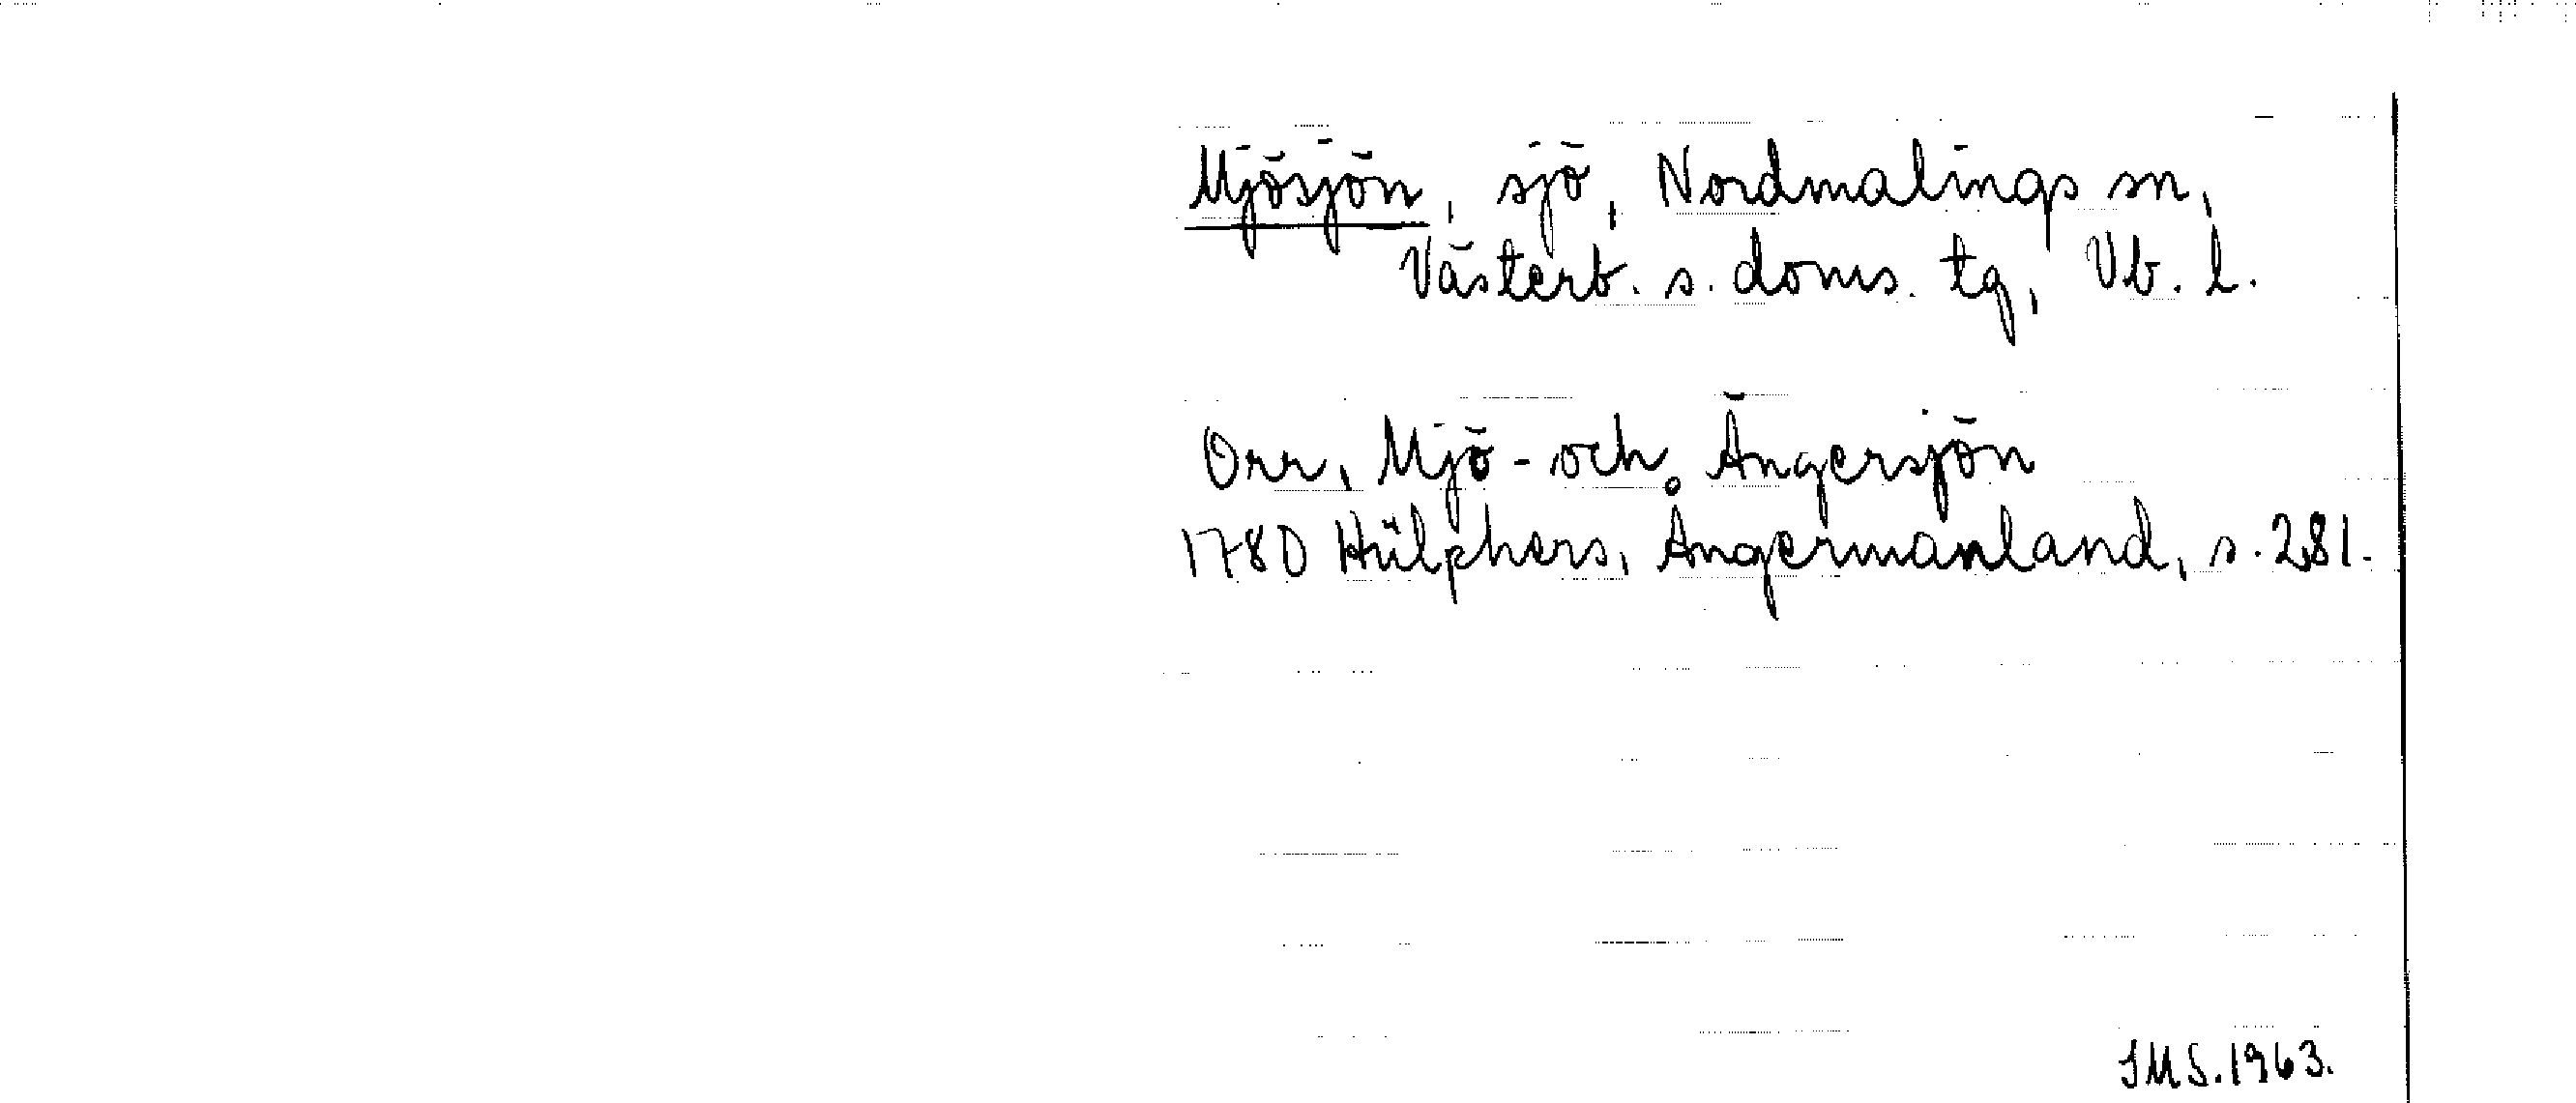 Mjösjön, sjö, Nordmalings sn,
Västerb. s. doms. tg, Vb. l.
Orr, Mjö- och Ängersjön
1780 Hülphers, Ångermanland, s. 281.
IMS. 1963.